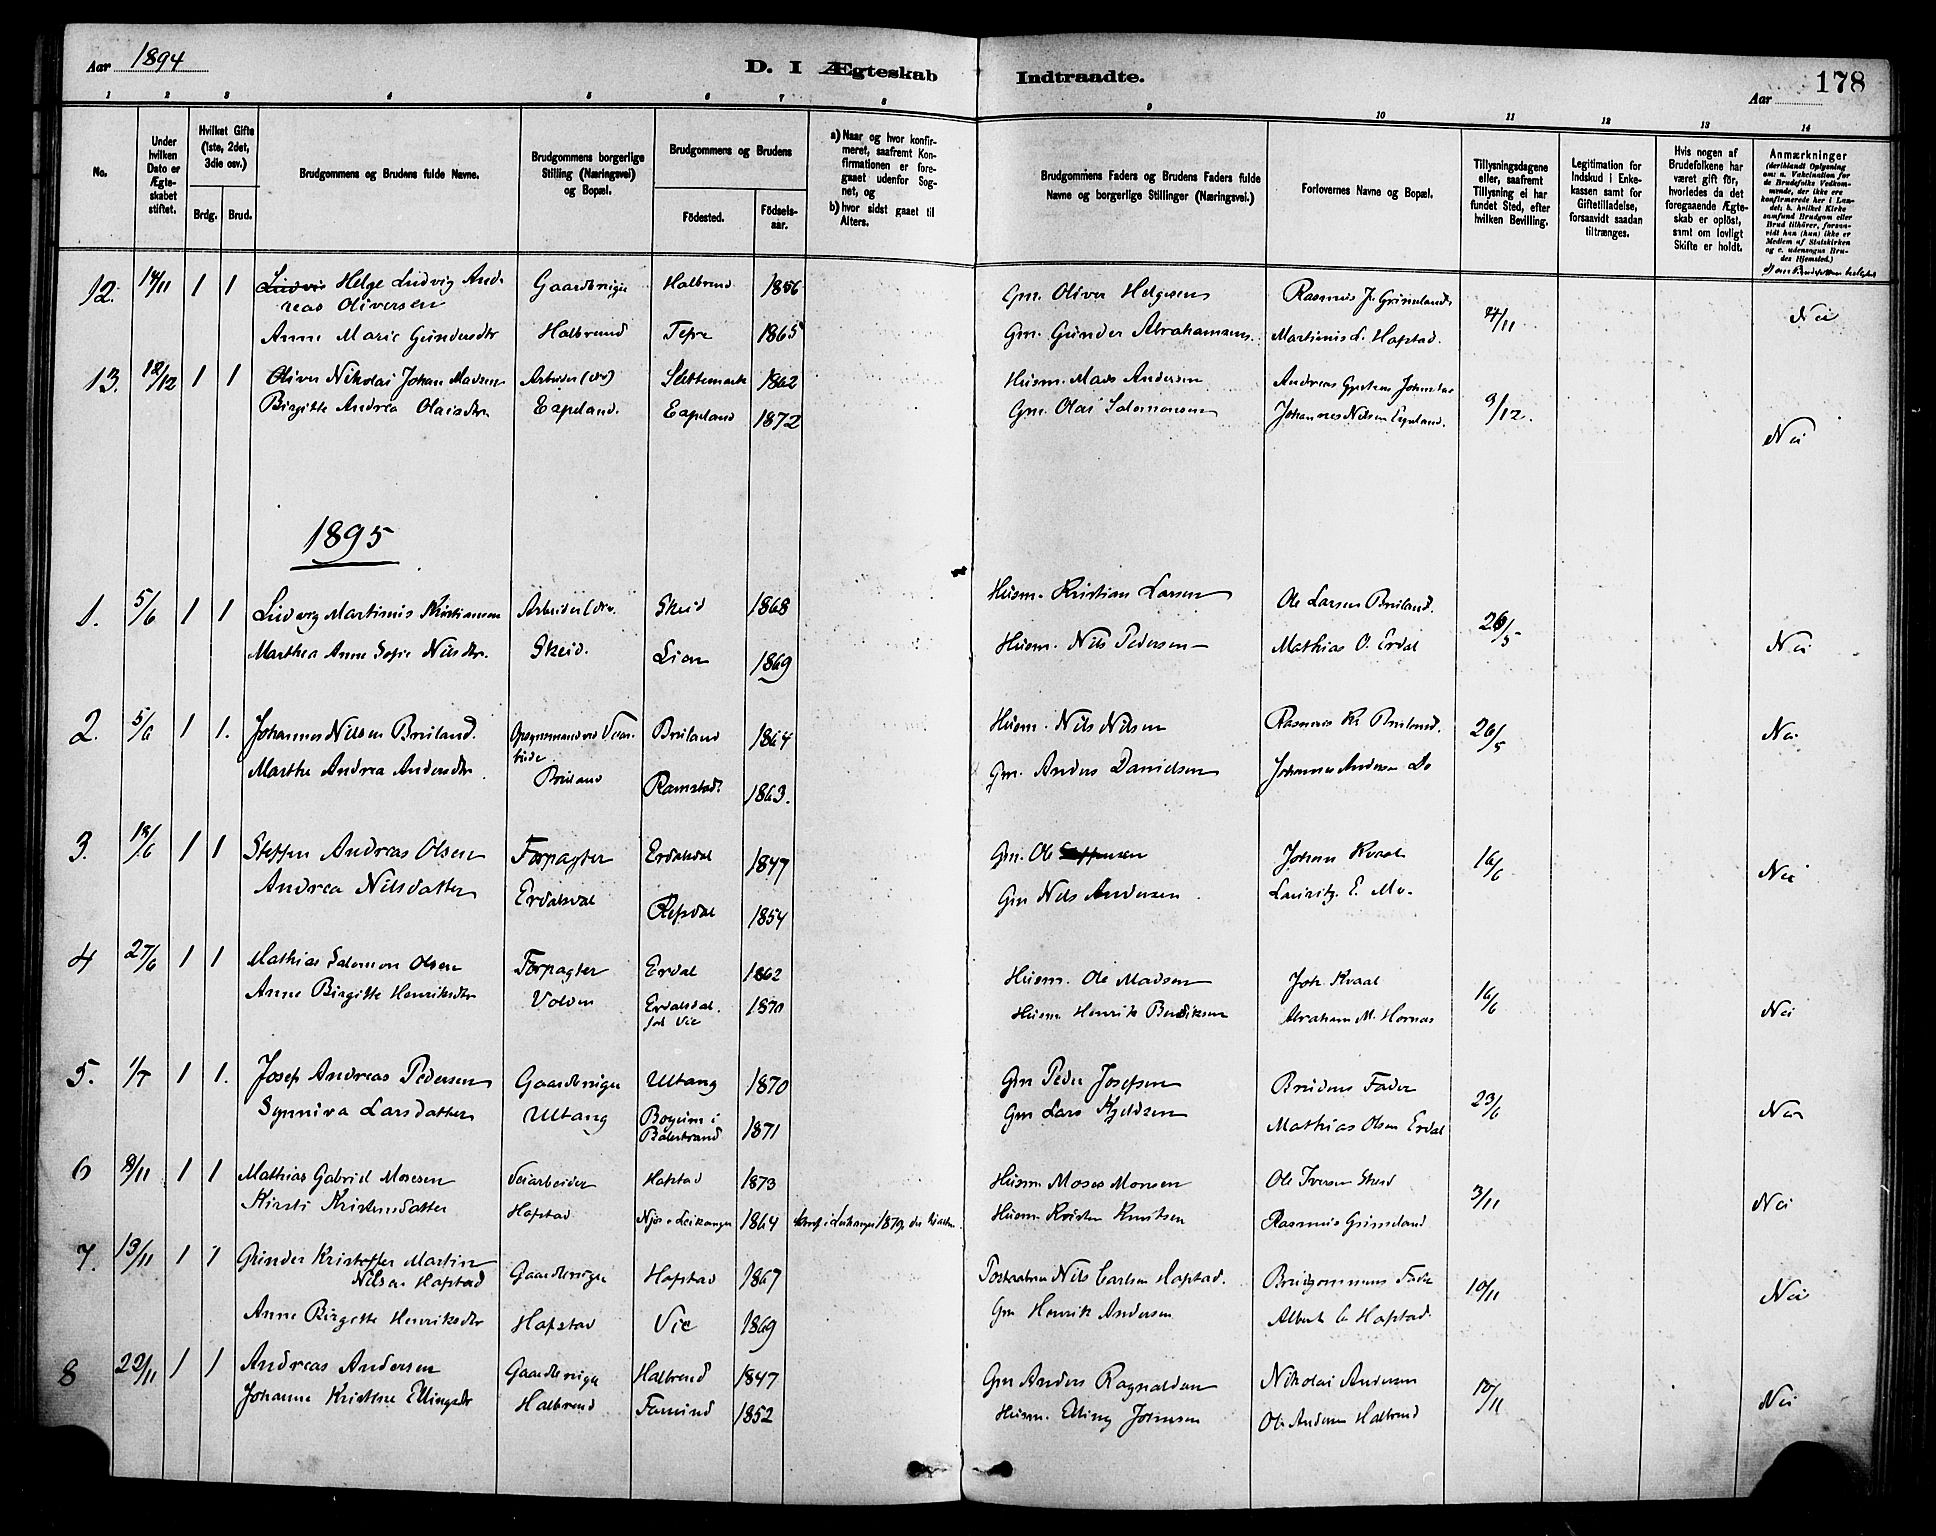 Aar 1894
D. I Ægteskab
Indtraadte.
Aar
178
1 2 3 4 5 6 7 8 9 10 11 12 13 14
No.
Under hvilken Dato er Ægteskabet stiftet.
Hvilket Gifte (1ste, 2det, 3die osv.)
Brdg. Brud.
Brudgommens og Brudens fulde Navne.
Brudgommens borgerlige Stilling (Næringsvei) og Bopæl.
Brudgommens og Brudens
Fødested. Fødsels-aar.
a) Naar og hvor konfirmeret, saafremt Konfirmationen er foregaaet udenfor Sognet, og
b) hvor sidst gaaet til Alters.
Brudgommens Faders og Brudens Faders fulde Navne og borgerlige Stillinger (Næringsvei.)
Forlovernes Navne og Bopæl.
Tillysningsdagene eller, saafremt Tillysning ei har fundet Sted, efter hvilken Bevilling.
Legitimation for Indskud i Enkekassen samt for Giftetilladelse, forsaavidt saadan tiltrænges.
Hvis nogen af Brudefolkene har været gift før, hvorledes da det foregaaende Ægteskab er opløst, samt om lovligt Skifte er holdt.
Anmærkninger
12. 14/11 1 1 Helge Ludvig Andreas Oliversen Gaardbruger Halbrend 1856 Gm. Oliver Helgesen Rasmus J. Grimeland 4/11 Nei
Anne Marie Gundersdtr Halbrend 1865 Gm. Gunder Abrahamsen Martinus L. Hafstad.
13. 12/12 1 1 Oliver Nikolai Johan Madsen Arbeider Slettemark 1862 Husm. Mads Andersen Andreas 9/12. Nei
Birgitte Andrea Olaisdtr Espeland. Espeland 1872 Gm. Olai Salomonsen Johannes Nilsen Espeland.
1895
1. 5/6 1 1 Ludvig Martinus Kristiansen Arbeider Skeid 1868 Husm. Kristian Larsen Ole Larsen Bruland. 26/5 Nei
Marthea Anne Sofie Nilsdtr. Skeid. Lien 1869 Husm. Nils Pedersen Mathias O. Erdal
2. 5/6 1 1. Johannes Nilsen Bruland. Bruland 1864 Husm. Nils Nilsen Rasmus Kr. Bruland. 26/5 Nei
Marthe Andrea Andersdtr. Bruland Ramstad. 1863. Gm. Anders Danielsen Johannes Andersen Do
3. 1 1 Steffen Andreas Olsen Forpagter Erdalsdal 1847 Gm. Ole Steffensen Johan Kvaal 16/6 Nei
Andrea Nilsdatter Erdalsdal Refsdal 1854 Gm Nils Andersen Lauritz E. Mo.
4 27/6 1 1 Mathias Salomon Olsen Forpagter Erdal 1862 Husm. Ole Madsen Joh. Kvaal 16/6 Nei
Anne Birgitte Henriksdtr Volden Erdalsdal. 1870 Husm Henrik Bendiksen Abraham M. Hornes
5. 1/7 1 1. Josef Andreas Pedersen Gaardbruger Ultang 1870 Gm Peder Josefsen Brudens Fader 23/6 Nei
Synneva Larsdatter Ultang Bøyum i Balestrand 1871 Gm Lars Kjeldsen Mathias Olsen Erdal
6 8/11 1 1 Mathias Gabriel Mosesen Veiarbeider Hafstad 1873 Husm Moses Monsen Ole Iversen Skeid 3/11 Nei
Kirsti Kristensdatter Hafstad Njøs i Leikanger 1864 Husm. Kristen Knutsen Rasmus Grimeland
7. 13/11 1 1 Gunder Kristoffer Martin Nilsen Hafstad Gaardbruger Hafstad 1867 Nils Carlsen Hafstad. Brudgommens Fader 10/11 Nei
Anne Birgitte Henriksdtr Hafstad Vie 1869 Gm Henrik Andersen Albert C Hafstad.
8 22/11 1 1 Andreas Andersen Gaardbruger Halbrend 1847 Gm Anders Ragnaldsen Nikolai Andersen 10/11 Nei
Johanne Kristine Ellingsdtr Halbrend 1852 Husm. Elling Jørnsen Ole Andersen Halbrend